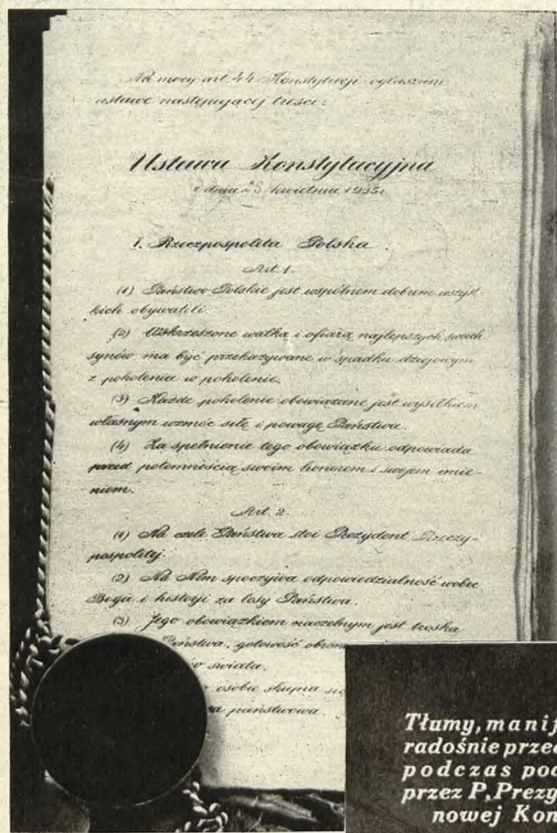 Na mocy art. 44 Konstytucji ogłaszam
ustawę następującej treści:
Ustawa Konstytucyjna
z dnia 23 kwietnia 1935r.
I. Rzeczpospolita Polska.
Art. 1.
(1) Państwo Polskie jest wspólnem dobrem wszyst-
kich obywateli.
(2) Wskrzeszone walką i ofiarą najlepszych swoich
synów ma być przekazywane w spadku dziejowym
z pokolenia w pokolenie.
(3) Każde pokolenie obowiązane jest wysiłkiem
własnym wzmóc siłę i powagę Państwa.
(4) Za spełnienie tego obowiązku odpowiada
przed potomnością swoim honorem i swojem imie-
niem.
Art. 2.
(1) Na czele Państwa stoi Prezydent Rzeczy-
pospolitej.
(2) Na Nim spoczywa odpowiedzialność wobec
Boga i historji za losy Państwa.
(3) Jego obowiązkiem naczelnym jest troska
Państwa, gotowość obron
świata.
osobie skupia się
państwowa.
Tłumy, manif
radośnie przed
podczas pod
przez P. Prezy
nowej Kon